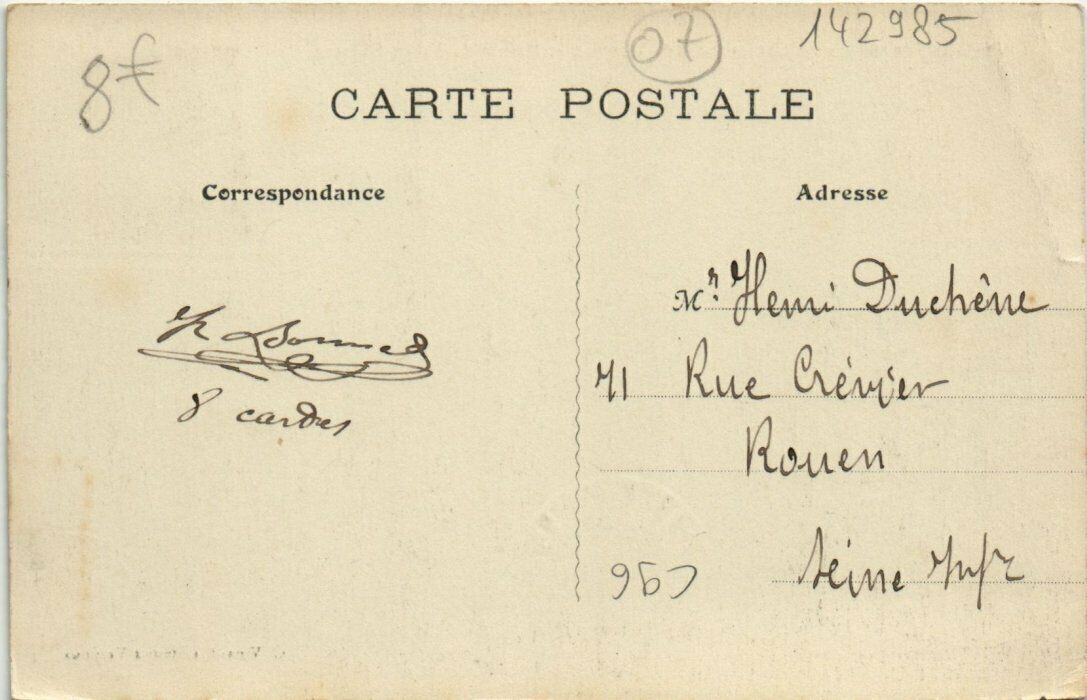 8€
07
142985
CARTE POSTALE
Correspondance
Adresse
Mr. Henri Duchêne
71 Rue Crévier
Rouen
Seine Infre
8 cartes